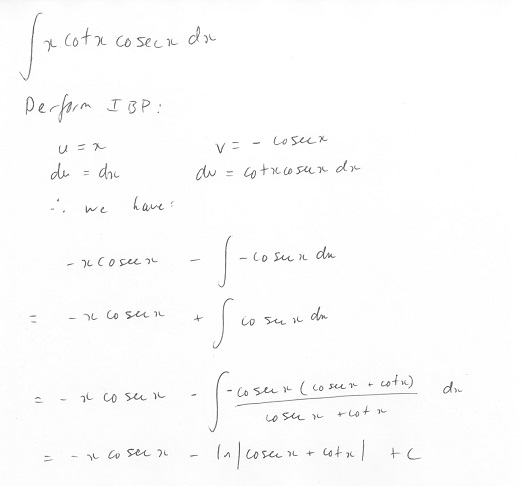 ∫ x cotx cosecx dx
Perform IBP:
u = x    v = - cosecx
du = dx    dv = cotx cosecx dx
∴ we have:
-x cosecx - ∫ -cosecx dx
= -x cosecx + ∫ cosecx dx
= -x cosecx - ∫ -cosecx (cosecx + cotx) / cosecx + cotx dx
= -x cosecx - ln|cosecx + cotx| + C